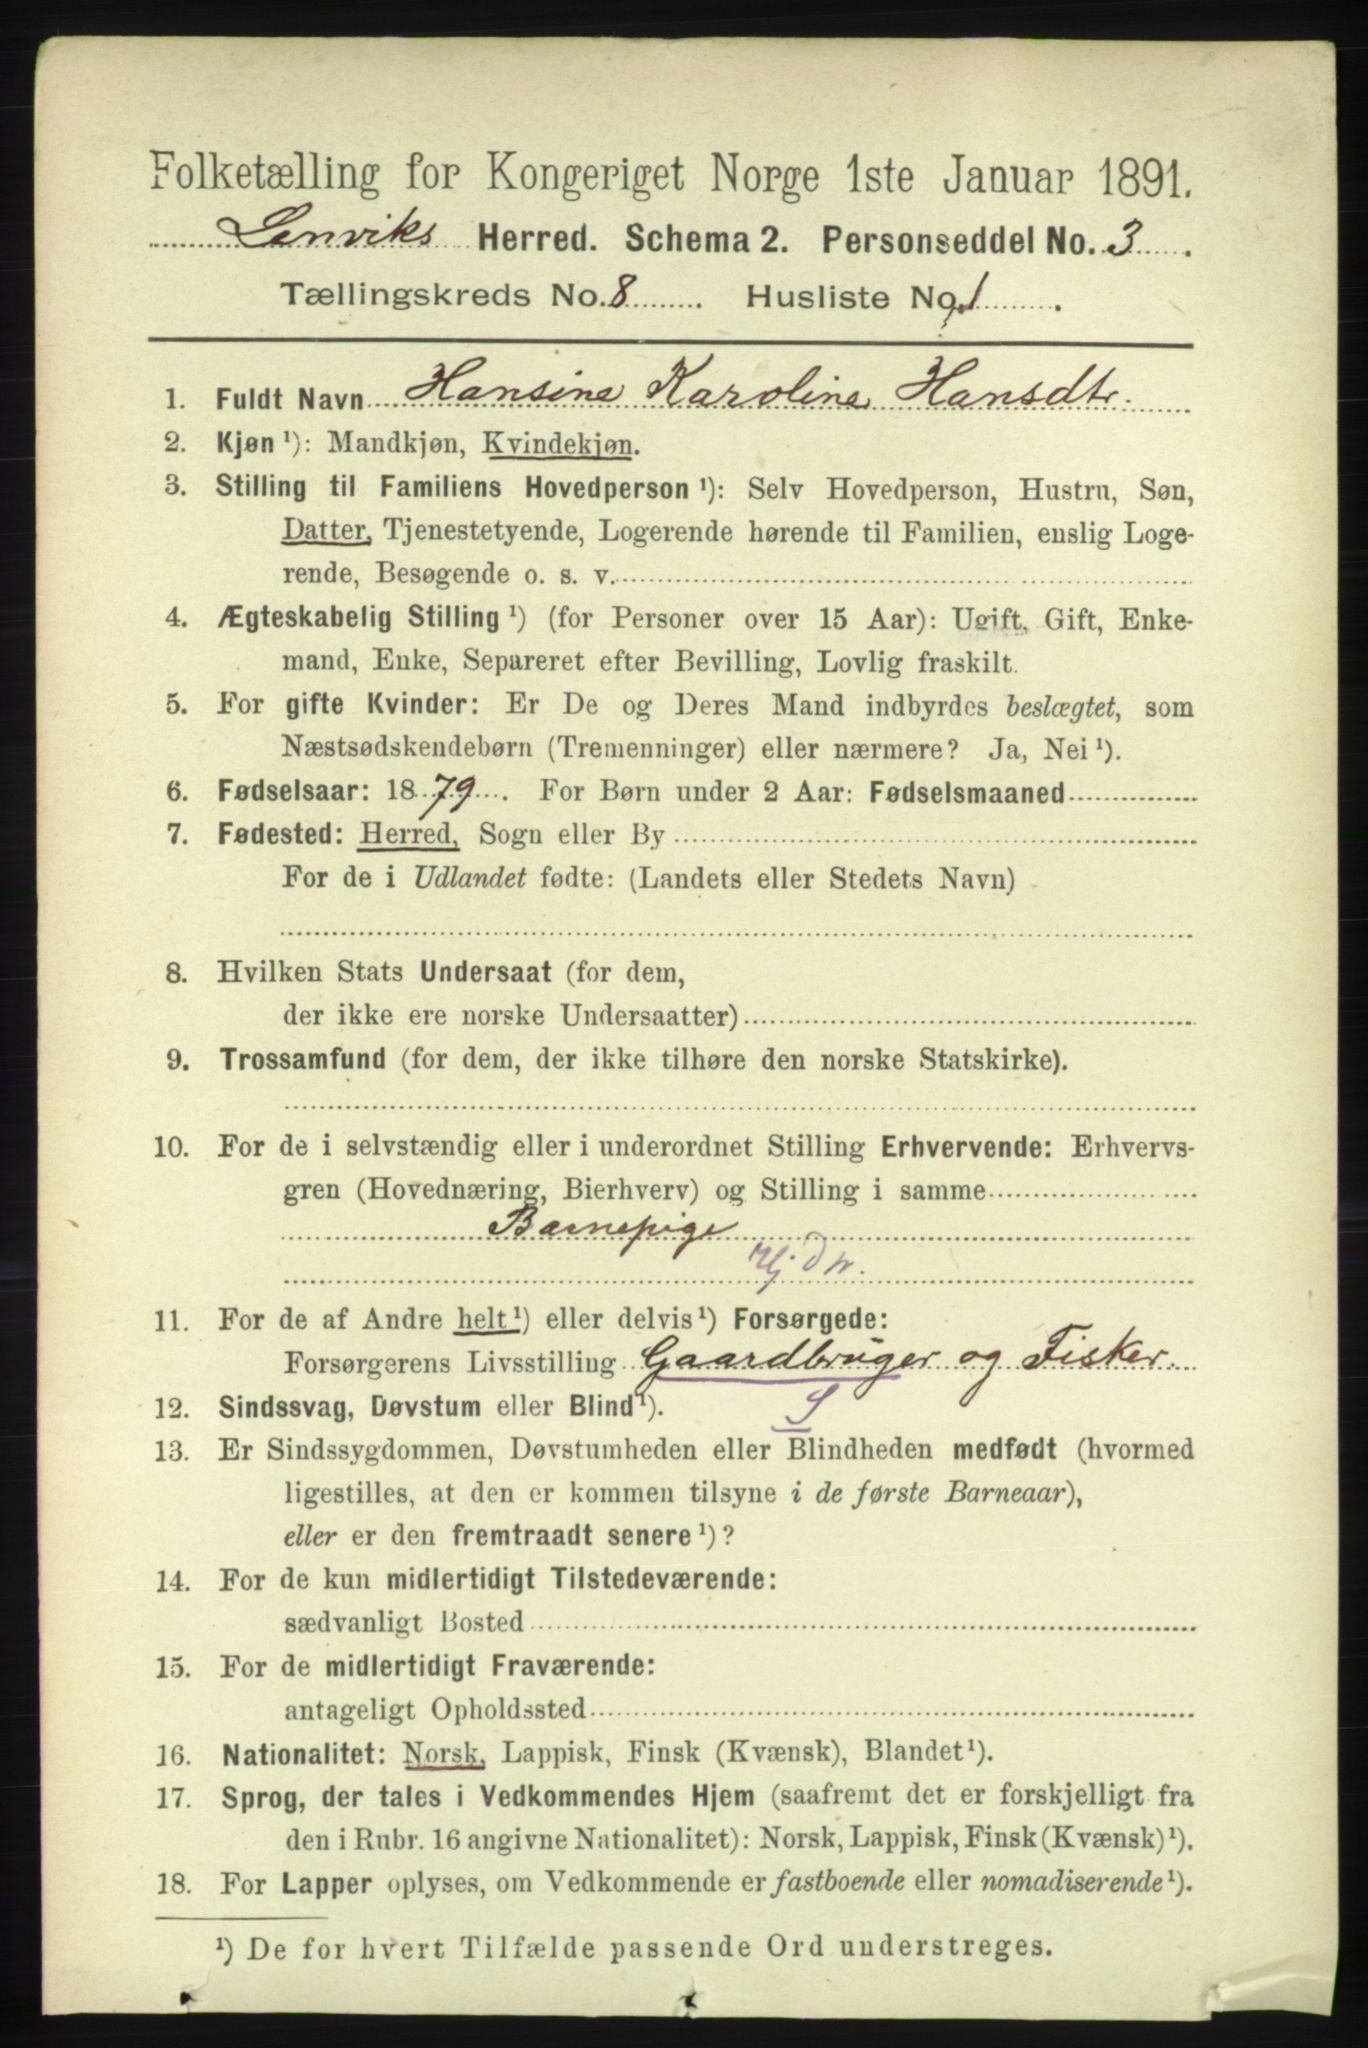 Folketælling for Kongeriget Norge 1ste Januar 1891.
Lenviks Herred. Schema 2. Personseddel No. 3.
Tællingskreds No. 8. Husliste No. 1.
1. Fuldt Navn Hansine Karoline Hansdtr.
2. Kjøn ¹): Mandkjøn, Kvindekjøn.
3. Stilling til Familiens Hovedperson ¹): Selv Hovedperson, Hustru, Søn,
Datter, Tjenestetyende, Logerende hørende til Familien, enslig Loge-
rende, Besøgende o. s. v.
4. Ægteskabelig Stilling ¹) (for Personer over 15 Aar): Ugift, Gift, Enke-
mand, Enke, Separeret efter Bevilling, Lovlig fraskilt.
5. For gifte Kvinder: Er De og Deres Mand indbyrdes beslægtet, som
Næstsødskendebørn (Tremenninger) eller nærmere? Ja, Nei ¹).
6. Fødselsaar: 1879. For Børn under 2 Aar: Fødselsmaaned
7. Fødested: Herred, Sogn eller By
For de i Udlandet fødte: (Landets eller Stedets Navn)
8. Hvilken Stats Undersaat (for dem,
der ikke ere norske Undersaatter)
9. Trossamfund (for dem, der ikke tilhøre den norske Statskirke).
10. For de i selvstændig eller i underordnet Stilling Erhvervende: Erhvervs-
gren (Hovednæring, Bierhverv) og Stilling i samme
Barnepige
11. For de af Andre helt ¹) eller delvis ¹) Forsørgede:
Forsørgerens Livsstilling Gaardbruger og Fisker.
S
12. Sindssvag, Døvstum eller Blind ¹).
13. Er Sindssygdommen, Døvstumheden eller Blindheden medfødt (hvormed
ligestilles, at den er kommen tilsyne i de første Barneaar),
eller er den fremtraadt senere ¹)?
14. For de kun midlertidigt Tilstedeværende:
sædvanligt Bosted
15. For de midlertidigt Fraværende:
antageligt Opholdssted
16. Nationalitet: Norsk, Lappisk, Finsk (Kvænsk), Blandet ¹).
17. Sprog, der tales i Vedkommendes Hjem (saafremt det er forskjelligt fra
den i Rubr. 16 angivne Nationalitet): Norsk, Lappisk, Finsk (Kvænsk) ¹).
18. For Lapper oplyses, om Vedkommende er fastboende eller nomadiserende ¹).
¹) De for hvert Tilfælde passende Ord understreges.